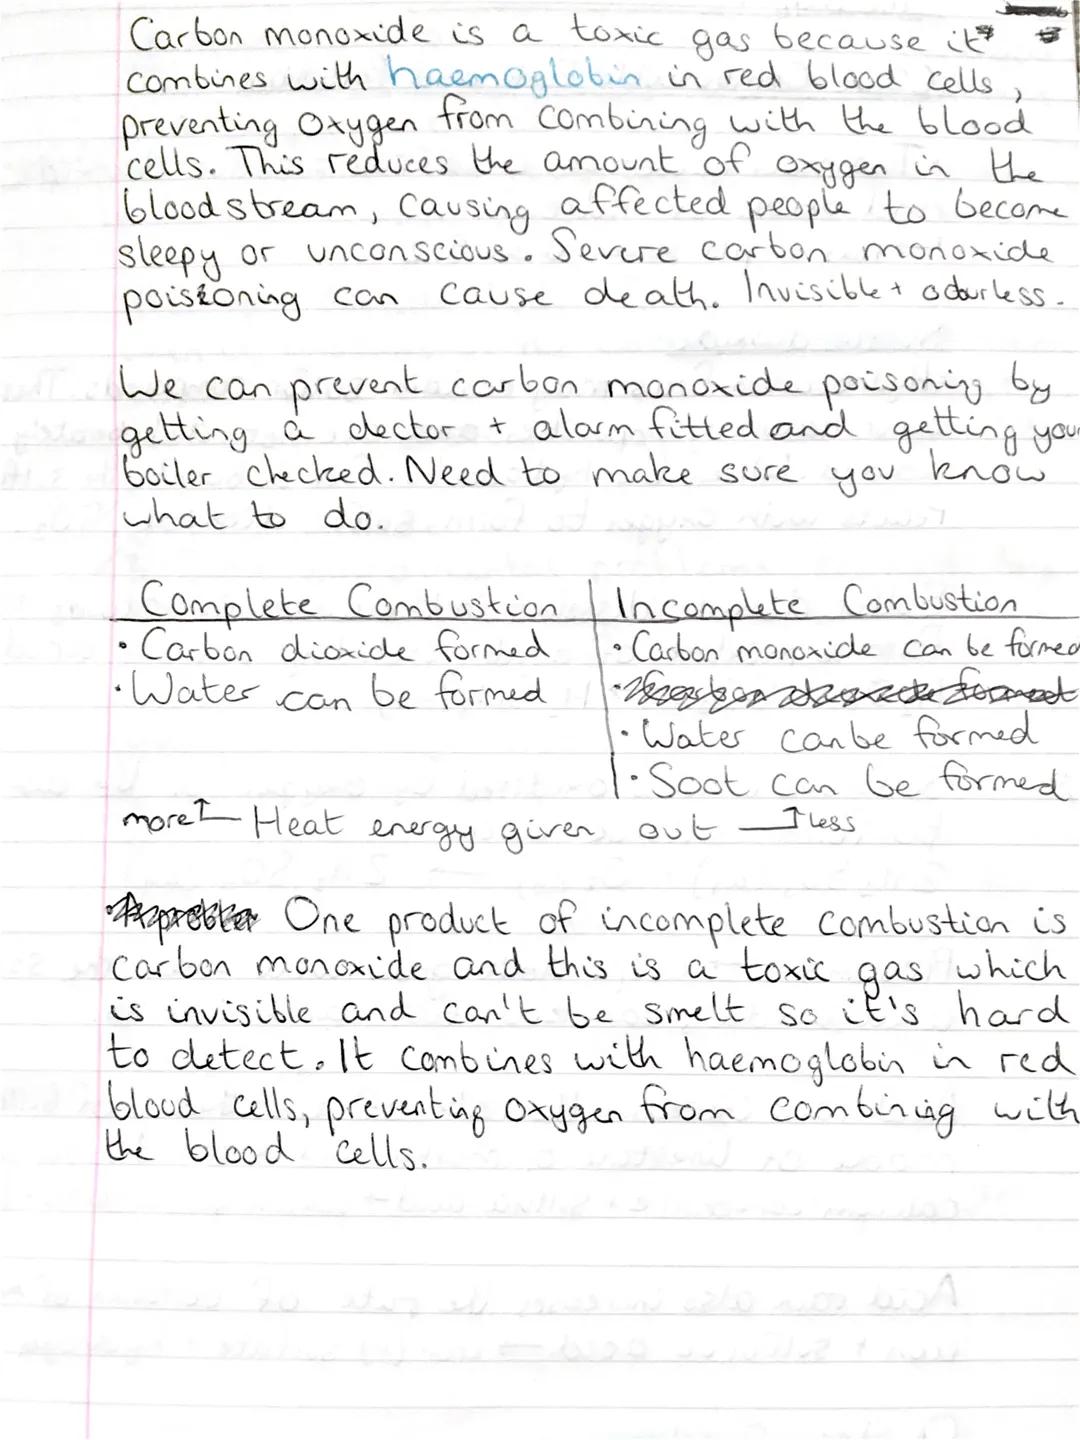 Carbon monoxide is a toxic gas because it
combines with haemoglobin in red blood cells,
preventing oxygen from combining with the blood
cells. This reduces the amount of oxygen in the
bloodstream, causing affected people to become
sleepy or unconscious. Severe carbon monoxide
poisioning can cause death. Invisible + odourless.
We can prevent carbon monoxide poisoning by
getting a dector + alarm fitted and getting your
boiler checked. Need to make sure you know
what to do.
Complete Combustion | Incomplete Combustion
• Carbon dioxide formed • Carbon monoxide can be formed
• Water can be formed
• Water can be formed
• Soot can be formed
more ↑ Heat energy given out ↑ less
One product of incomplete combustion is
carbon monoxide and this is a toxic gas which
is invisible and can't be smelt so it's hard
to detect. It combines with haemoglobin in red
blood cells, preventing oxygen from combining with
the blood cells.